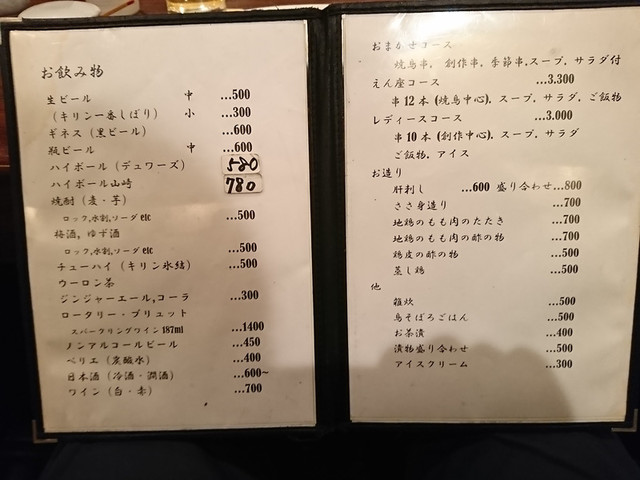 お飲み物
生ビール 中 …500
(キリン一番しぼり) 小 …300
ギネス(黒ビール) …600
瓶ビール 中 …600
ハイボール(デュワーズ) 580
ハイボール山崎 780
焼酎(麦・芋)
ロック,水割,ソーダ etc …500
梅酒, ゆず酒
ロック,水割,ソーダ etc …500
チューハイ(キリン氷結) …500
ウーロン茶
ジンジャーエール,コーラ …300
ロータリー・ブリュット
スパークリングワイン 187ml …1400
ノンアルコールビール …450
ペリエ(炭酸水) …400
日本酒(冷酒・燗酒) …600~
ワイン(白・赤) …700
おまかせコース
焼鳥串, 創作串, 季節串,スープ, サラダ付
えん座コース …3.300
串12本(焼鳥中心), スープ, サラダ, ご飯物
レディースコース …3.000
串10本(創作中心), スープ, サラダ
ご飯物, アイス
お造り
肝刺し …600 盛り合わせ…800
ささ身造り …700
地鶏のもも肉のたたき …700
地鶏のもも肉の酢の物 …700
鶏皮の酢の物 …500
蒸し鶏 …500
他
雑炊 …500
鳥そぼろごはん …500
お茶漬 …400
漬物盛り合わせ …500
アイスクリーム …300